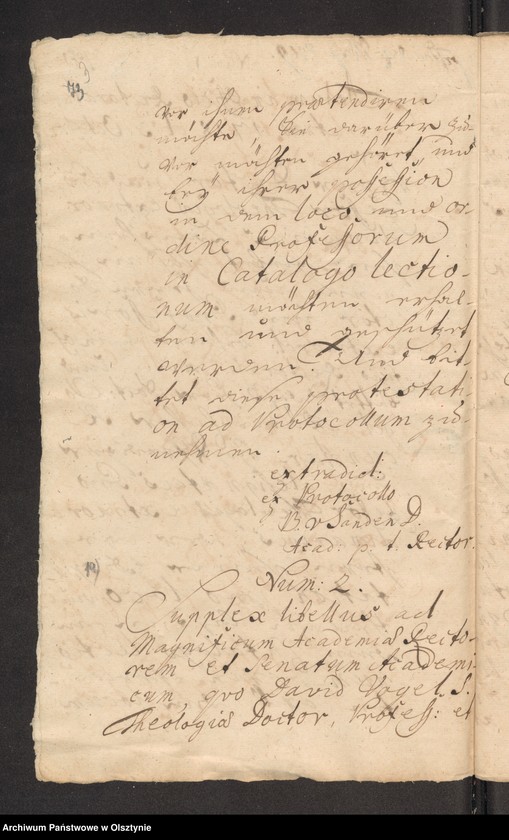 73
vor ihnen prætendiren
möchte. Sie darüber zu-
vor möchten gehöret, und
bey ihrer possession
in dem loco und or-
dine Professorum
in Catalogo lectio-
num möchten erhal-
ten und geschützet
werden. Und bit-
tet diese protestati-
on ad Protocollum zu-
nehmen.
extradict:
ex Protocollo
B. v Sanden D.
Acad: p: t. Rector.
Num: 2.
Supplex libellus ad
Magnificum Academiæ Recto-
rem et Senatum Academi-
cum, qvo David Vogel S.
Theologiæ Doctor, Profess: et
Archiwum Państwowe w Olsztynie